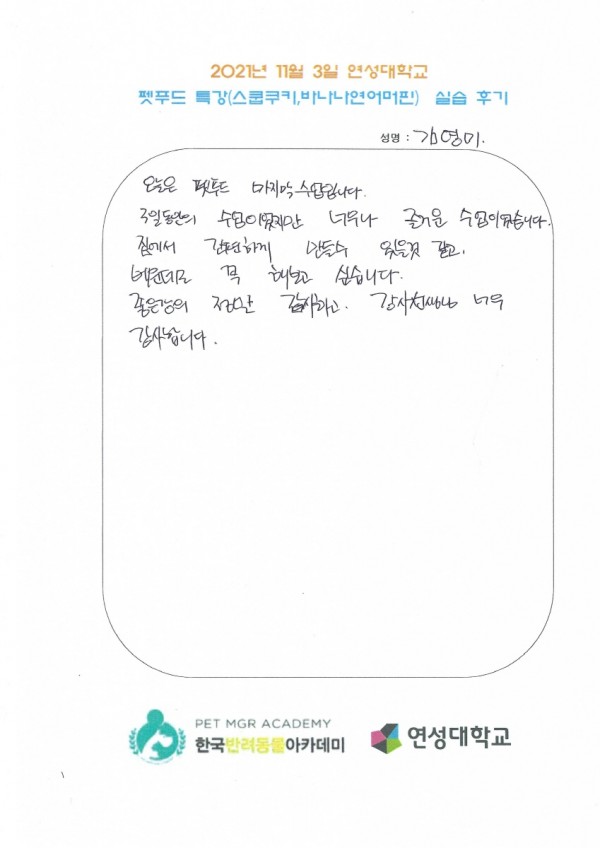 2021년 11월 3일 연성대학교
펫푸드 특강(스쿱쿠키,바나나연어머핀) 실습 후기
성명 : 김영미.
오늘은 펫푸드 마지막수업입니다.
3일동안의 수업이였지만 너무나 즐거운 수업이였습니다.
집에서 간편하게 만들수 있을것 같고,
꼭 해보고 싶습니다.
좋은강의 감사하고. 강사선생님 너무
감사합니다.
PET MGR ACADEMY
한국반려동물아카데미
연성대학교